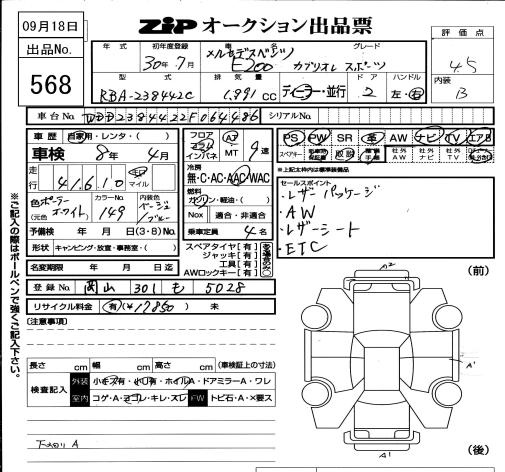 09月18日
ZIP オークション出品票
出品No.
568
年式 初年度登録 車名 グレード
30年7月 メルセデスベンツ E200 カブリオレ スポーツ
型式 排気量 ドア ハンドル
RBA-238442C 1.991 CC ディーラー・並行 2 左・右
評価点
4.5
内装
B
車台No. WDD2384422F064486 シリアルNo.
車歴 自家用・レンタ・( )
車検 8年 4月
走行 41,610 キロ マイル
色 ポーラーホワイト (元色) カラーNo. 149 内装色 ベージュ/ブルー
予備検 年 月 日(3・8)No.
形状 キャンピング・放置・事務室・( )
名変期限 年 月 日迄
フロア インパネ AT MT 9速
冷房
無・C・AC・AAC WAC
燃料
ガソリン・軽油・( )
Nox 適合・非適合
乗車定員 4名
スペアタイヤ[有]
ジャッキ[有]
工具[有]
AWロックキー[有]
PS PW SR 革 AW ナビ TV エアB
スペアキー 取説 社外AW 社外ナビ 社外TV
*上記太枠内は標準装備品
セールスポイント
・レザーパッケージ
・AW
・レザーシート
・ETC
登録No. 岡山 301 も 5028
リサイクル料金 有(¥17850) 未
(注意事項)
※ご記入の際はボールペンで強くご記入下さい。
長さ cm 幅 cm 高さ cm (車検証上の寸法)
検査記入 外装 小キズ有・小凹有・ホイルA・ドアミラーA・ワレ
室内 コゲ・A・ヨゴレ・キレ・スレ FW トビ石・A・×要ス
下廻り A
(前)
A2
A1
A1
(後)